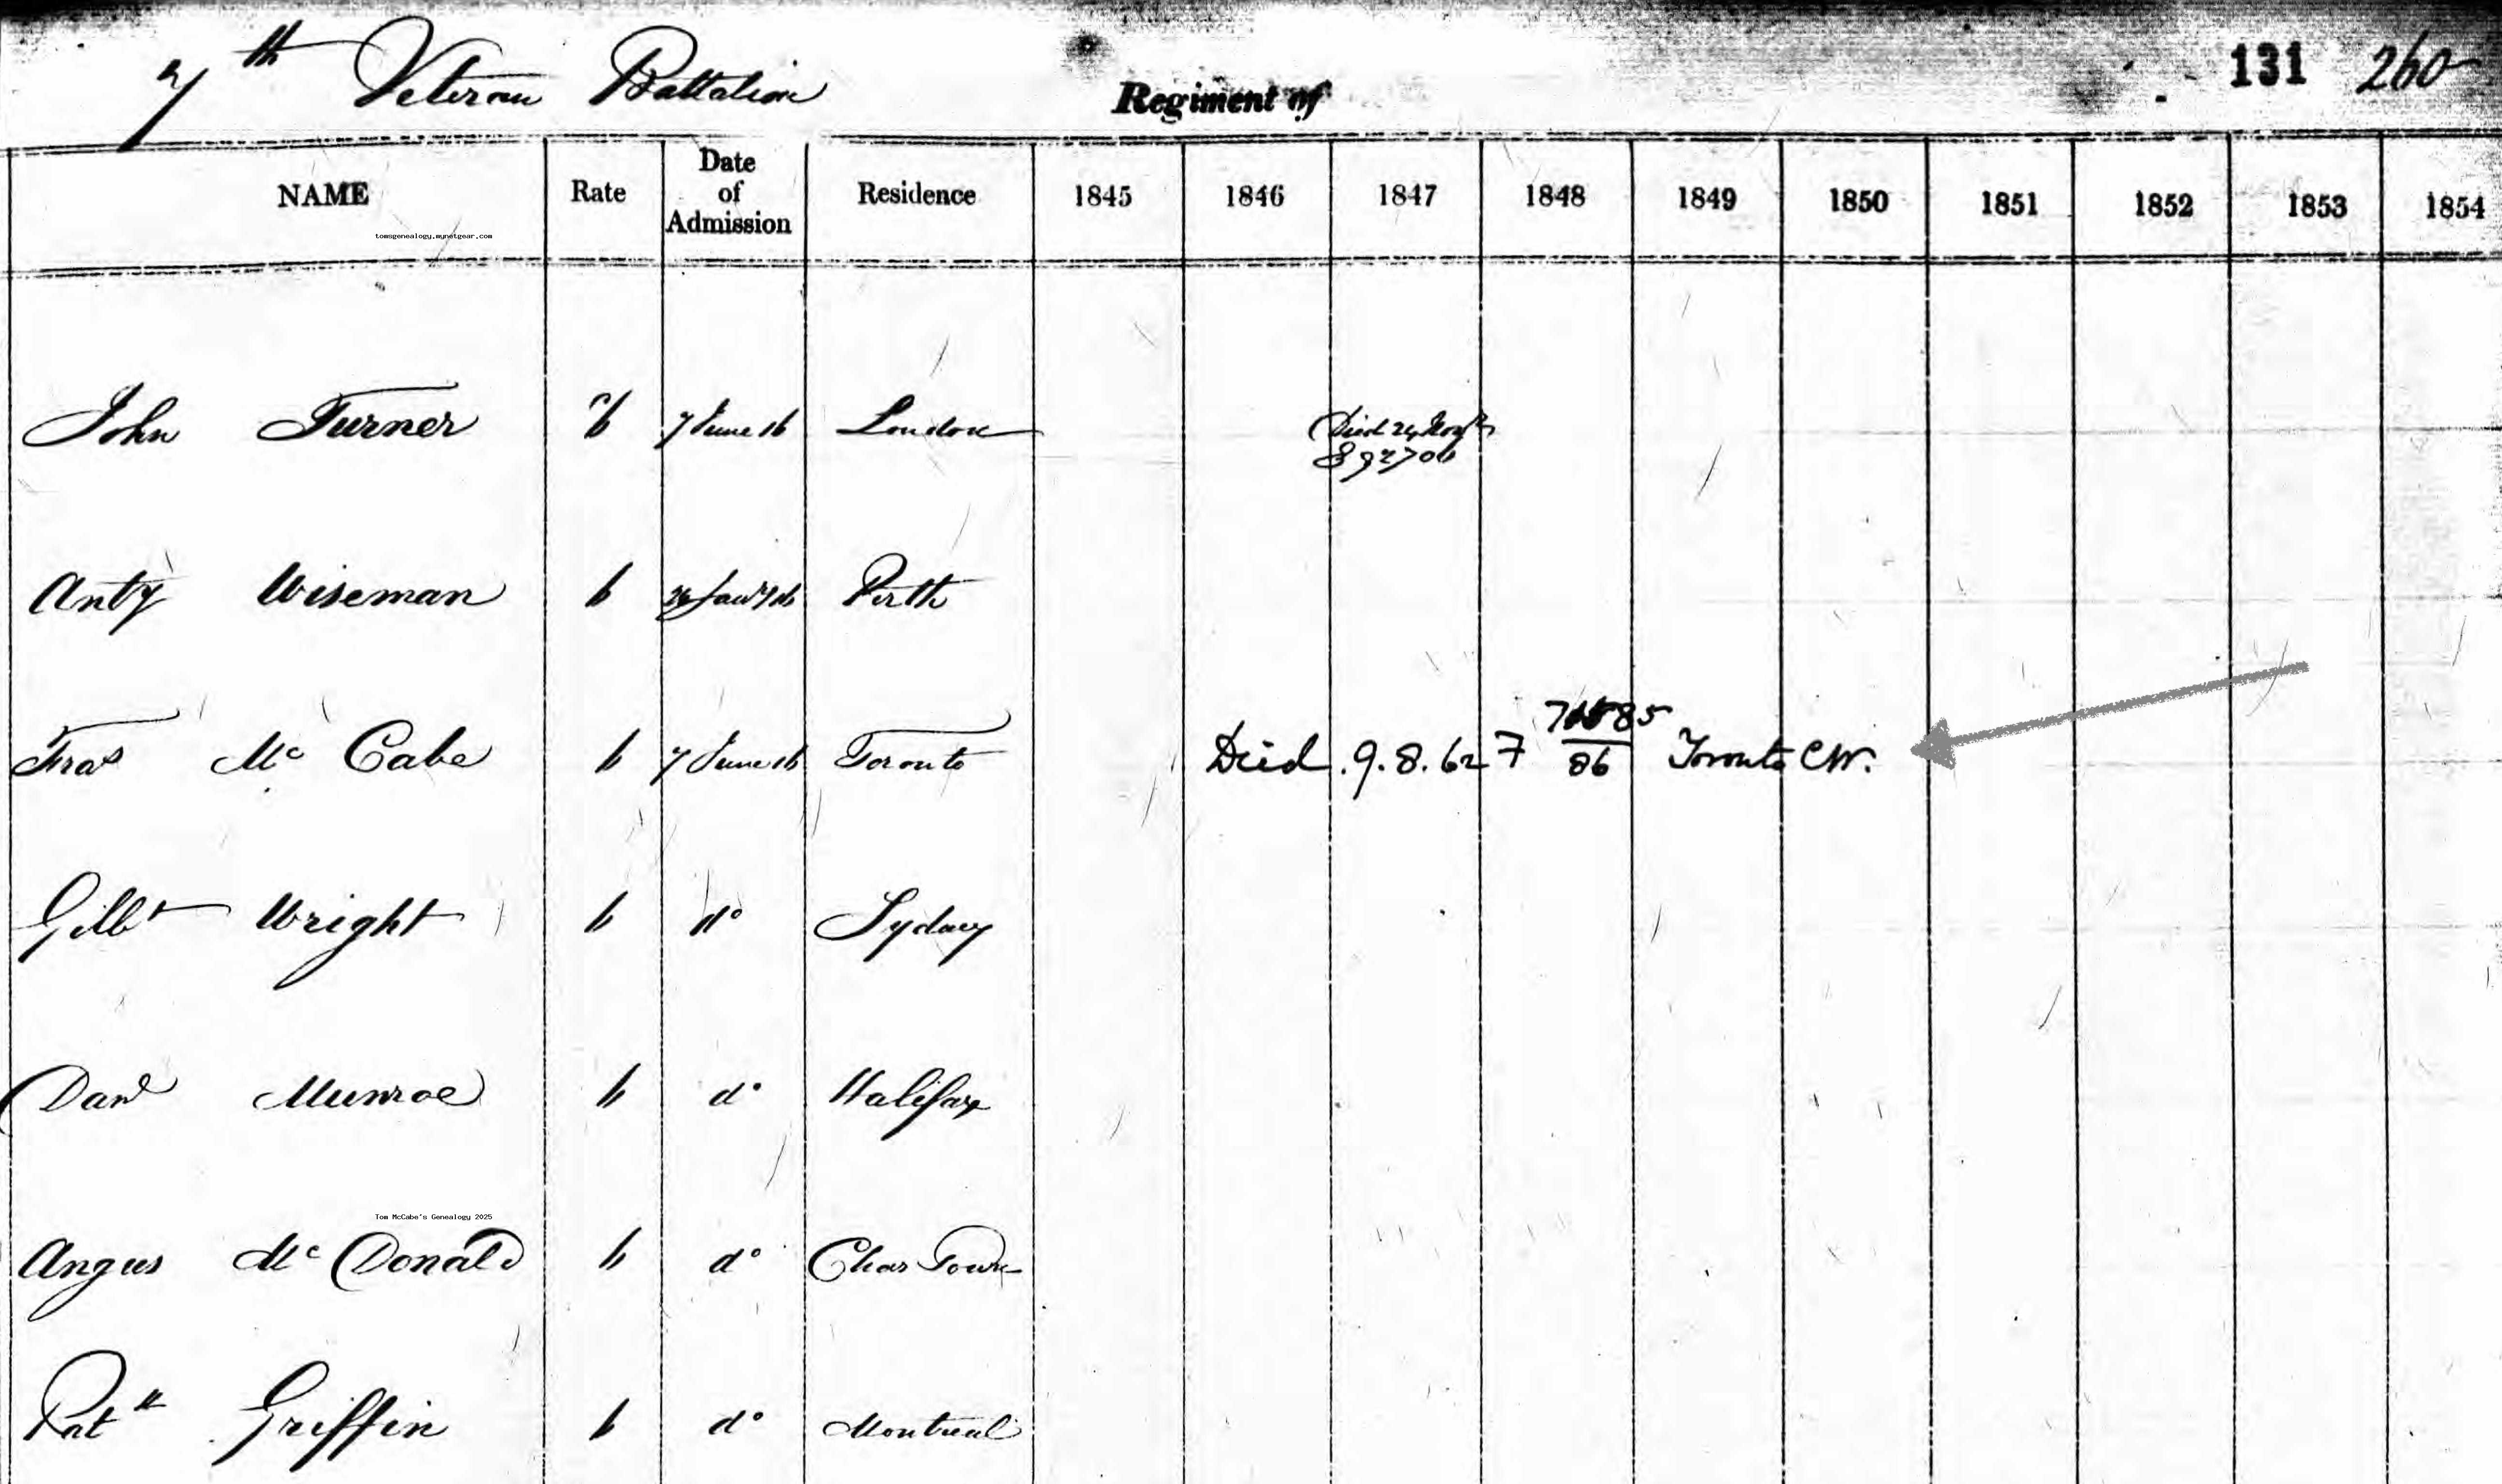 7th Veteran Battalion Regiment of 131 260
NAME Rate Date of Admission Residence 1845 1846 1847 1848 1849 1850 1851 1852 1853 1854
tomsgenealogy.mynetgear.com
John Turner 6 7 June 16 London Died 24
892706
Anty Wiseman 6 Perth
Fras Mc Cabe 6 7 June 16 Toronto Died 9.8.62 7 86 Toronto CW.
Gilbt Wright 6 do Sydney
Danl Munroe 6 do Halifax
Tom McCabe's Genealogy 2025
Angus Mc Donald 6 do Char Town
Patk Griffin 6 do Montreal